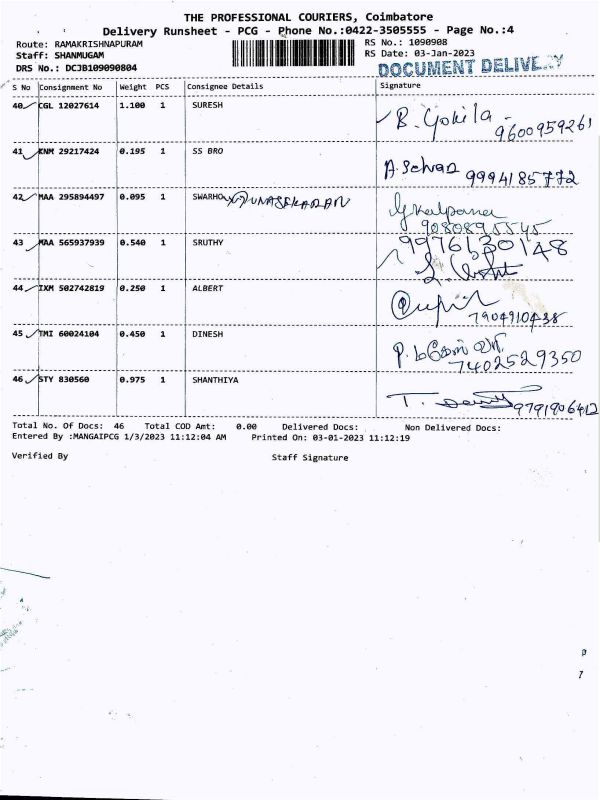 THE PROFESSIONAL COURIERS, Coimbatore
Delivery Runsheet - PCG - Phone No.:0422-3505555 - Page No.:4
Route: RAMAKRISHNAPURAM RS No.: 1090908
Staff: SHANMUGAM RS Date: 03-Jan-2023
DRS No.: DCJB109090804 DOCUMENT DELIVERY
S No Consignment No Weight PCS Consignee Details Signature
40 CGL 12027614 1.100 1 SURESH B. Gokila
9600959261
41 KNM 29217424 0.195 1 SS BRO
9994185772
42 MAA 295894497 0.095 1 SWARHO GUNASEKARAN Kalpana
9080895545
43 MAA 565937939 0.540 1 SRUTHY 9976130148
44 IXM 502742819 0.250 1 ALBERT
7904910438
45 TMI 60024104 0.450 1 DINESH
7402529350
46 STY 830560 0.975 1 SHANTHIYA
9791906412
Total No. Of Docs: 46 Total COD Amt: 0.00 Delivered Docs: Non Delivered Docs:
Entered By :MANGAIPCG 1/3/2023 11:12:04 AM Printed On: 03-01-2023 11:12:19
Verified By Staff Signature